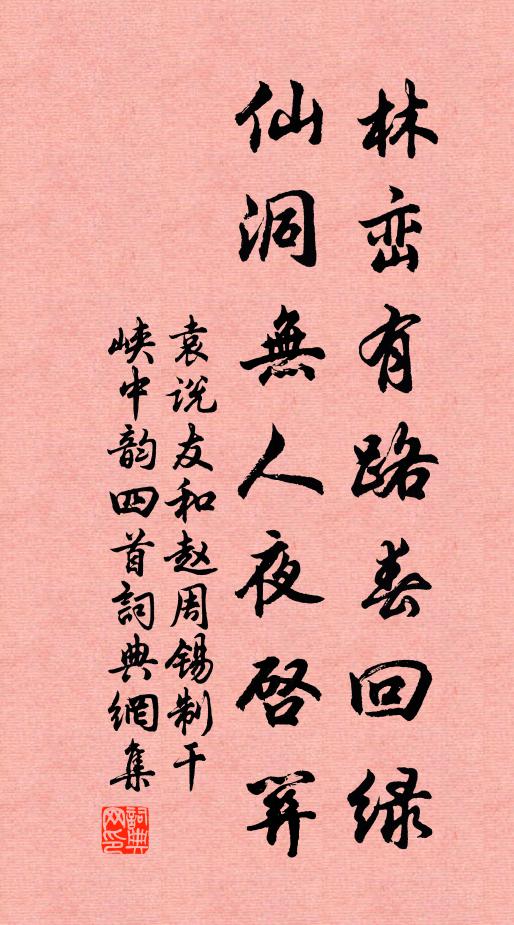 林峦有路春回绿
仙洞無人夜啓关
袁说友和赵周锡制干
峡中韵四首詞典網集
詞典网印